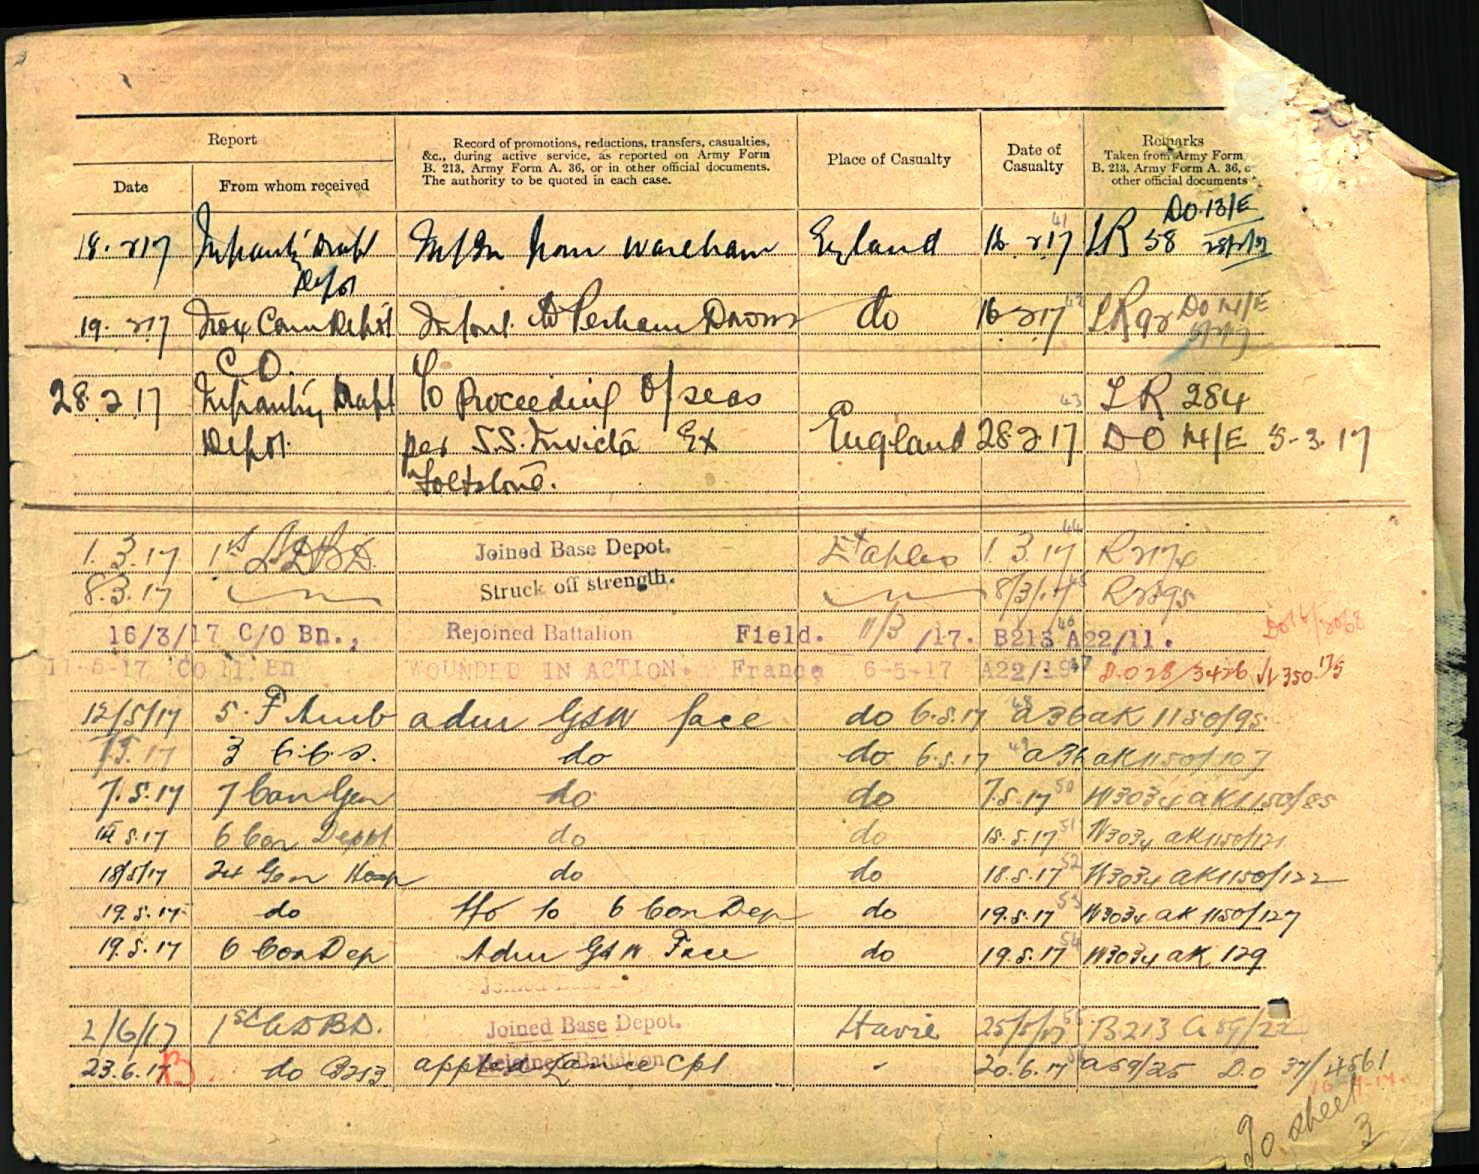 Report
Record of promotions, reductions, transfers, casualties,
&c., during active service, as reported on Army Form
B. 213, Army Form A. 36, or in other official documents.
The authority to be quoted in each case.
Place of Casualty
Date of
Casualty
Remarks
Taken from Army Form
B. 213, Army Form A. 36,
other official documents
Date
From whom received
DO 13/E
18. 2 17 Infantry Draft M/In from Wareham England 16 2 17 LR 58
Depot
19. 2 17 No 4 Com Depot to Perham Downs do 16 2 17 LR 92 DO 14/E
C.O.
28. 2. 17 Infantry Draft To Proceeding O/seas 43 LR 284
Depot. per S.S. Invicta Ex England 28 2 17 DO 14/E 5-3.17
Folkstone.
44
1.3.17 1st ADBD. Joined Base Depot. Etaples 1.3.17
8.3.17 Struck off strength. 8/3/17
16/3/17 C/O Bn., Rejoined Battalion Field. 11/3/17. B213 A22/11.
11-5-17 CO 11 Bn WOUNDED IN ACTION. France 6-5-17 A22/19 DO 28/3426
12/5/17 5. F Amb adm GSW face do 6.5.17 48 a36 aK 1150/95
3 C.C.S. do do 6.5.17 49 a36 aK 1150/107
7.5.17 7 Can Gen do do 7.5.17 50 W3034 aK 1150/85
5.17 6 Con Depot do do 15.5.17 51 W3034 aK 1150/121
18/5/17 24 Gen Hosp do do 18.5.17 52 W3034 aK 1150/122
19.5.17 do to 6 Con Dep do 19.5.17 53 W3034 aK 1150/127
19.5.17 6 Con Dep Adm GSW Face do 19.5.17 54 W3034 aK 129
2/6/17 1st ADBD. Joined Base Depot. Havre 25/5/17 B213 a 59/22
23.6.17 B do B213 Rejoined Battalion app Lance Cpl 20.6.17 a59/25 D.O 37/4561
To sheet
3